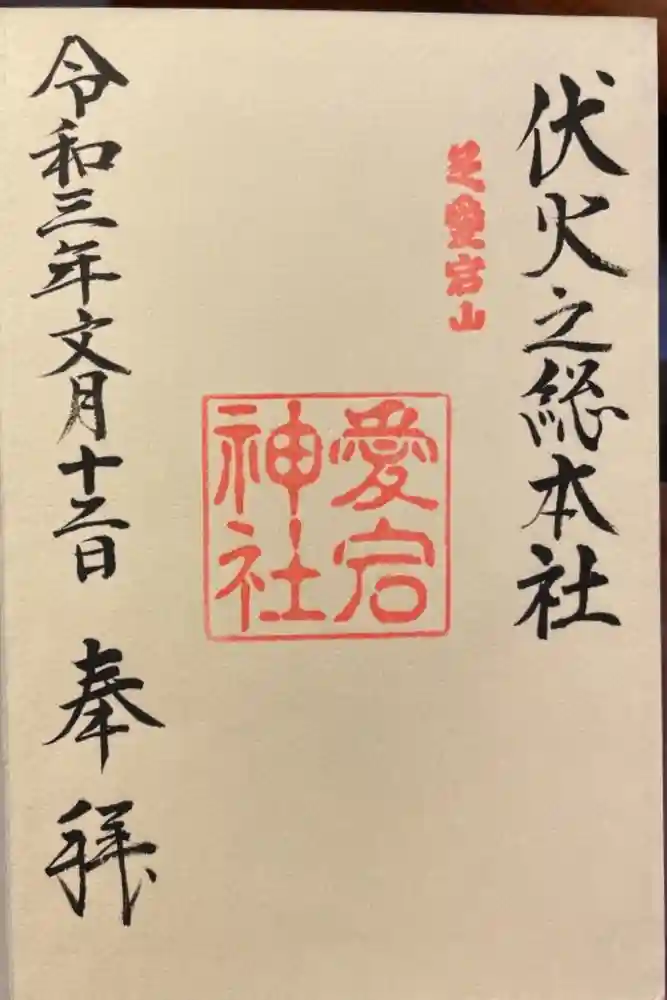 伏火之総本社
芝愛宕山
愛宕
神社
令和三年文月十二日 奉拜